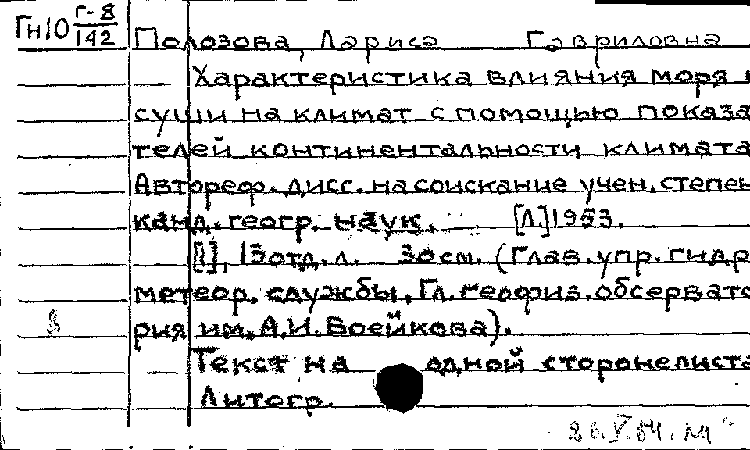 Гн10 г-8/142
Полозова, Лариса Гавриловна
Характеристика влияния моря и
суши на климат с помощью показа
телей континентальности климата
Автореф. дисс. на соискание учен. степен
канд. геогр. наук. [Л.] 1953.
[1], 13 отд. л. 30 см. (Глав. упр. гидро
метеор. службы. Гл. геофиз. обсервато
рия им. А.И. Воейкова).
Текст на одной стороне листа
Литогр.